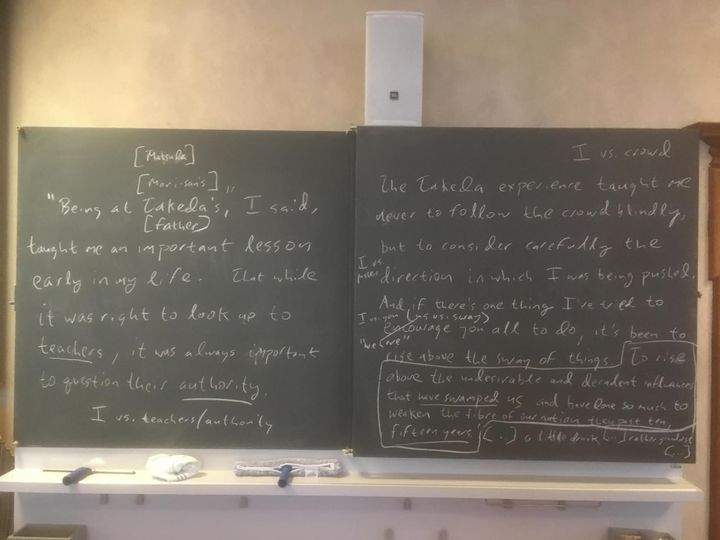 [Matsuda]
[Mori-san's]
"Being at Takeda's," I said,
[father]
taught me an important lesson
early in my life. That while
it was right to look up to
teachers, it was always important
to question their authority.
I vs. teachers/authority
I vs. crowd
The Takeda experience taught me
never to follow the crowd blindly,
but to consider carefully the
I vs.
direction in which I was being pushed.
And if there's one thing I've tried to
I vs. you (us vs. sway)
encourage you all to do, it's been to
"we are"
rise above the sway of things. To rise
above the undesirable and decadent influences
that have swamped us and have done so much to
weaken the fibre of our nation these past ten,
fifteen years.' (...) a little drunk (...) rather grandiose
(...)]